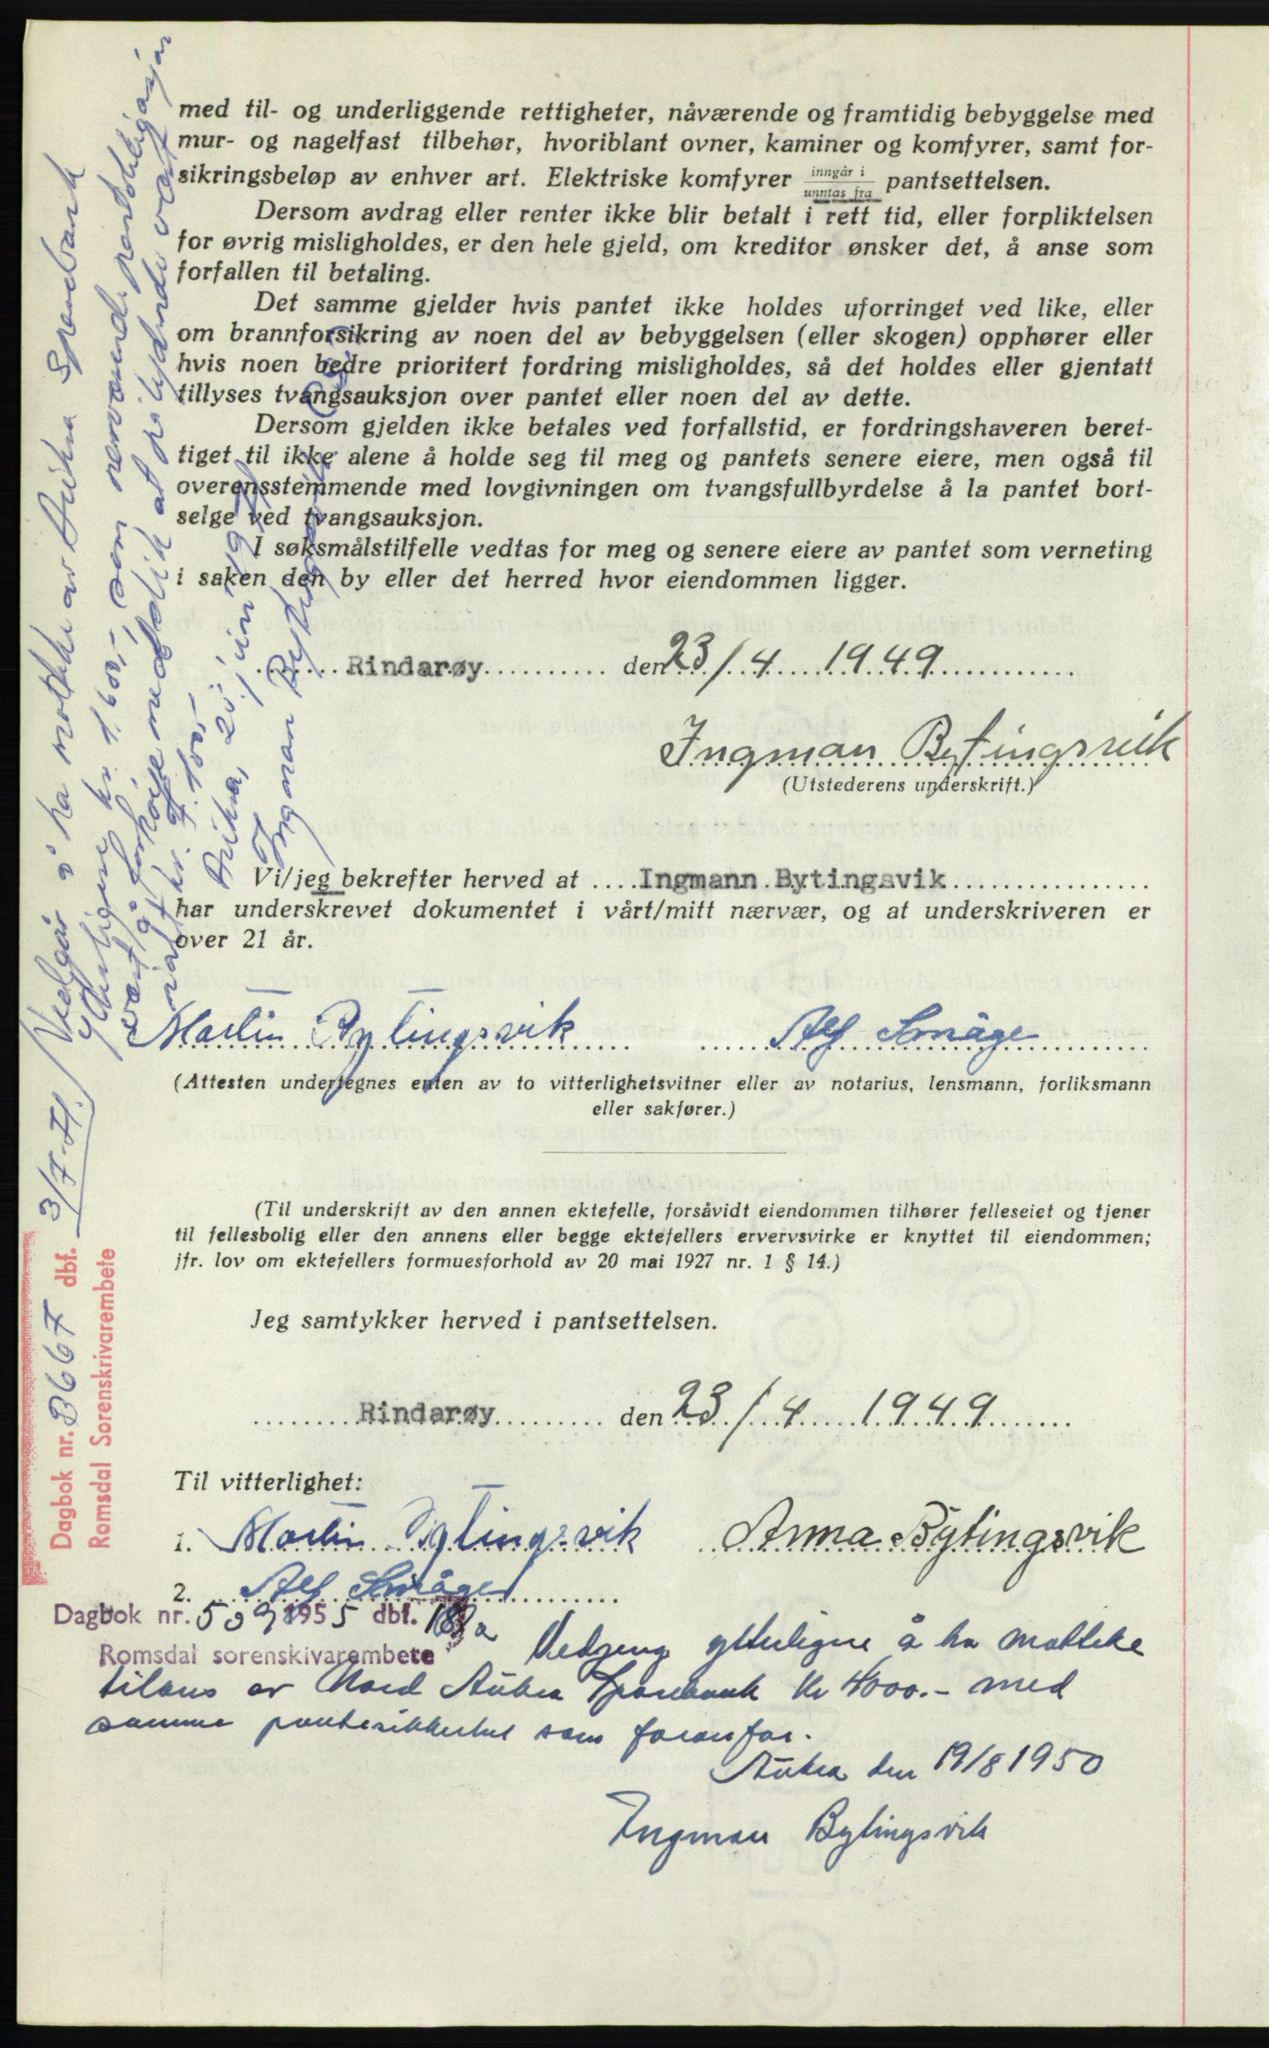 med til- og underliggende rettigheter, nåværende og framtidig bebyggelse med
mur- og nagelfast tilbehør, hvoriblant ovner, kaminer og komfyrer, samt for-
sikringsbeløp av enhver art. Elektriske komfyrer inngår i / unntas fra pantsettelsen.
Dersom avdrag eller renter ikke blir betalt i rett tid, eller forpliktelsen
for øvrig misligholdes, er den hele gjeld, om kreditor ønsker det, å anse som
forfallen til betaling.
Det samme gjelder hvis pantet ikke holdes uforringet ved like, eller
om brannforsikring av noen del av bebyggelsen (eller skogen) opphører eller
hvis noen bedre prioritert fordring misligholdes, så det holdes eller gjentatt
tillyses tvangsauksjon over pantet eller noen del av dette.
Dersom gjelden ikke betales ved forfallstid, er fordringshaveren beret-
tiget til ikke alene å holde seg til meg og pantets senere eiere, men også til
overensstemmende med lovgivningen om tvangsfullbyrdelse å la pantet bort-
selge ved tvangsauksjon.
I søksmålstilfelle vedtas for meg og senere eiere av pantet som verneting
i saken den by eller det herred hvor eiendommen ligger.
Rindarøy den 23/4 1949
Ingman Bytingsvik
(Utstederens underskrift.)
Vi/jeg bekrefter herved at Ingmann Bytingsvik
har underskrevet dokumentet i vårt/mitt nærvær, og at underskriveren er
over 21 år.
Martin Bytingsvik Alf Småge
(Attesten undertegnes enten av to vitterlighetsvitner eller av notarius, lensmann, forliksmann
eller sakfører.)
(Til underskrift av den annen ektefelle, forsåvidt eiendommen tilhører felleseiet og tjener
til fellesbolig eller den annens eller begge ektefellers ervervsvirke er knyttet til eiendommen;
jfr. lov om ektefellers formuesforhold av 20 mai 1927 nr. 1 § 14.)
Jeg samtykker herved i pantsettelsen.
Rindarøy den 23/4 1949
Til vitterlighet:
1. Martin Bytingsvik Anna Bytingsvik
2. Alf Småge
Dagbok nr. 509 1955 dbf.
Romsdal sorenskivarembete
Vedgeng ytterligere å ha mottatt
tilans av Nord Aukra Sparebank kr 4000.- med
samme pantesikkerhet som foranfor.
Aukra den 19/8 1950
Ingman Bytingsvik
Dagbok nr. 3667 dbf. 3/7-71.
Romsdal Sorenskrivarembete
Vedgår å ha mottke av Aukra Sparebank
ytterligere kr. 1.600,- som nerværende pantobligasjon
vert å forhøie med slik at pålydende vert
ialt kr. 7.100,-
Aukra, 25 juni 1971
Ingman Bytingsvik